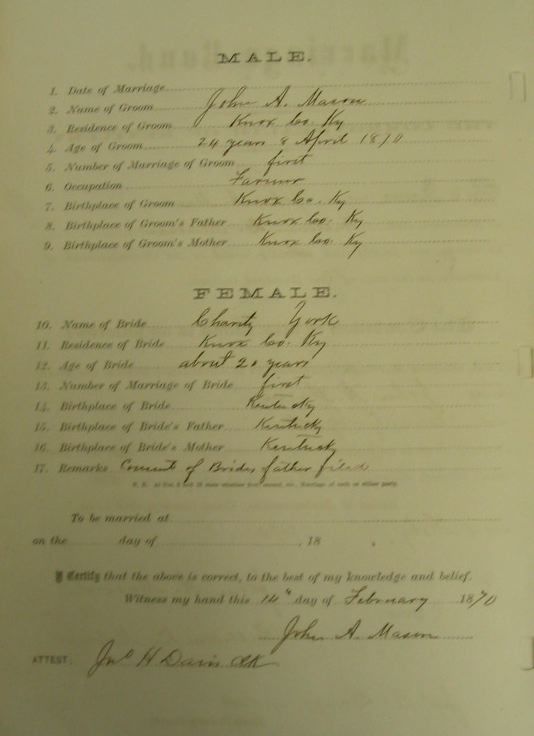 MALE.
1. Date of Marriage
2. Name of Groom John A. Mason
3. Residence of Groom Knox Co. Ky
4. Age of Groom 24 years 8 April 1870
5. Number of Marriage of Groom first
6. Occupation Farmer
7. Birthplace of Groom Knox Co. Ky
8. Birthplace of Groom's Father Knox Co. Ky
9. Birthplace of Groom's Mother Knox Co. Ky
FEMALE.
10. Name of Bride Charity York
11. Residence of Bride Knox Co. Ky
12. Age of Bride about 20 years
13. Number of Marriage of Bride first
14. Birthplace of Bride Kentucky
15. Birthplace of Bride's Father Kentucky
16. Birthplace of Bride's Mother Kentucky
17. Remarks Consent of Brides father filed
To be married at
on the day of , 18
I Certify that the above is correct, to the best of my knowledge and belief.
Witness my hand this 14" day of February 1870
John A. Mason
ATTEST. Jno H Davis Clk